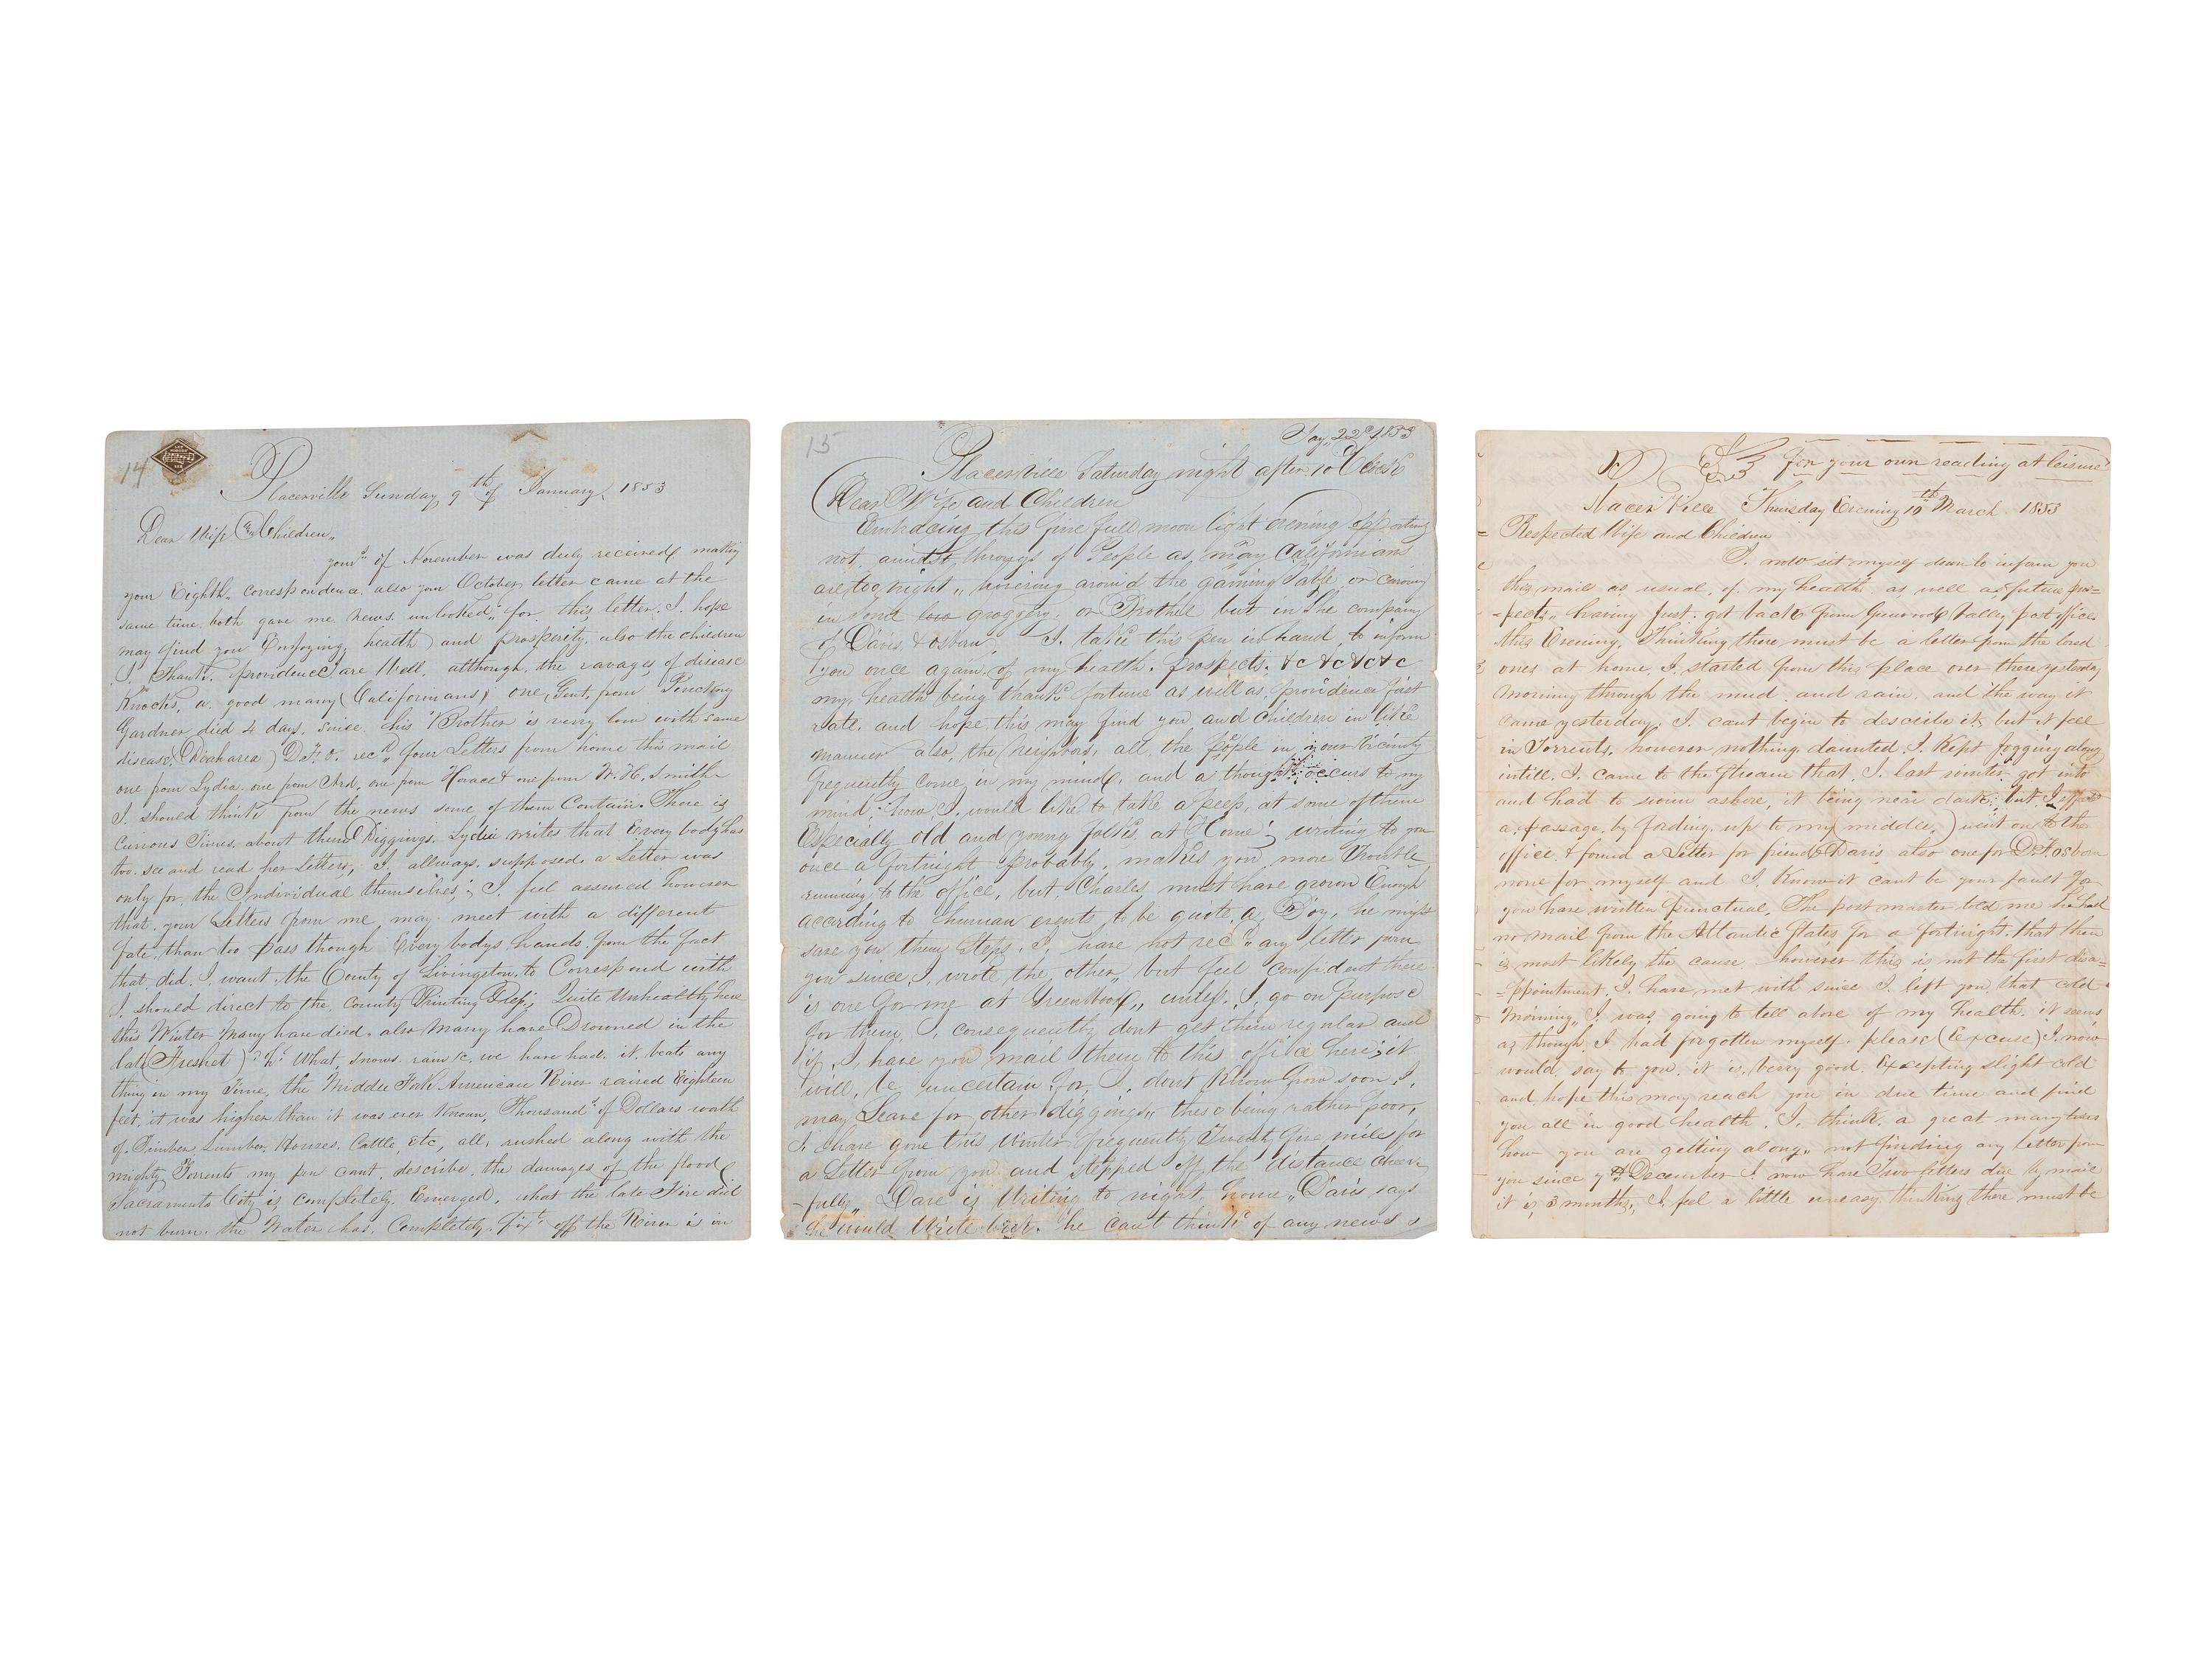 14
Placerville Sunday 9th of January 1853
Dear Wife & Children,
yours of November was duly received making
your Eighth correspondence also your October letter came at the
same time both gave me news unlooked for, this letter I hope
may find you Enjoying health and prosperity, also the children
I Thank providence are Well, although the ravages of disease
Knocks a good many (Californians) one Gent, from
Gardner died 4 days since his Brother is verry low with same
disease (Dioharea) D.F.O. recd four Letters from home this mail
one from Lydia one from Ard, one from Horace & one from W. H. Smith
I should think from the news some of them Contain. There is
Curious Times about them Diggings. Lydia writes that Every body has
too see and read her Letters, I allways supposed a Letter was
only for the Individual themselves; I feel assured however
that your Letters from me may meet with a different
fate than too pass though Every bodys hands from the fact
that did I want the County of Livingston to Correspond with
I should direct to the County Printing Press; Quite Unhealthy here
this Winter Many have died also Many have Drowned in the
late (Freshet) What snows rains &c we have had it beats any
thing in my Time, the Middle Fork American River raised Eighteen
feet, it was higher than it was ever Known, Thousands of Dollars worth
of Timber Lumber, Houses, Cattle, etc, all, rushed along with the
mighty Torrents my pen cant describe the damages of the flood
Sacramento City is completely Emerged, what the late Fire did
not burn the Water has Completely fixd off the River is in
15
Jay, 22d 1853
Placerville Saturday night after 10 O Clock
Dear Wife and Children
Embraceing this fine full moon light evening opportuny
not amidst throngs of People as many Californians
are too night, hovering around the gaming Table or carousing
in some low groggery or Brothel but in the company
of Davis & Osborn I take this pen in hand to inform
you once again of my health prospects &c &c &c &c
my health being thanks fortune as well as providence first
rate and hope this may find you and children in like
manner also the neighbors, all the people in our vicinity
frequently come in my mind, and a thought occurs to my
mind; how I would like to take a peep at some of them
Especially old and young folks at Home; writing to you
once a fortnight probably makes you more Trouble
running to the office, but Charles must have grown Enough
according to human events to be quite a Boy, he might
save you them Steps; I have not recd any letter from
you since I wrote the other, but feel confident there
is one for me at Greenwood, unless I go on purpose
for them I consequently dont get them regular and
if I have you mail them to this office here; it
will be uncertain for I dont Know how soon I
may Leave for other diggings, these being rather poor,
I have gone this Winter frequently Twenty five miles for
a Letter from you and stepped off the distance cheer
-fully, Dave is Writing to night home, Davis says
he would Write but he can't think of any news
For your own reading at leisure
Placer Ville Thursday Evening 10th March 1853
Respected Wife and Children
I now set myself down to inform you
this mail as usual, of my health as well as future pros=
=pects, having just got back from Greenwood Valley post office
this Evening. Thinking there must be a letter from the loved
ones at home I started from this place over there yesterday
Morning through the mud and rain and the way it
came yesterday; I cant begin to describe it, but it fell
in Torrents, however nothing daunted I Kept jogging along
untill I came to the stream that I last winter got into
and had to swim ashore, it being near dark; but I
a passage by fording up to my (middle,) went on to the
office & found a Letter for friend Davis also one for D F Osborn
none for myself and I Know it cant be your fault for
you have written punctual, The post master told me he had
no mail from the Attlantic States for a fortnight that then
is most likely the cause however this is not the first disa=
=ppointment I have met with since I left you that cold
Morning, I was going to tell above of my health it seems
as though I had forgotten myself please (Excuse) I now
would say to you it is very good Excepting slight cold
and hope this may reach you in due time and find
you all in good health, I think a great many times
how you are getting along, not finding any letter from
you since 7th December I now have Two letters due by mail
it is 3 months, I feel a little uneasy thinking there must be